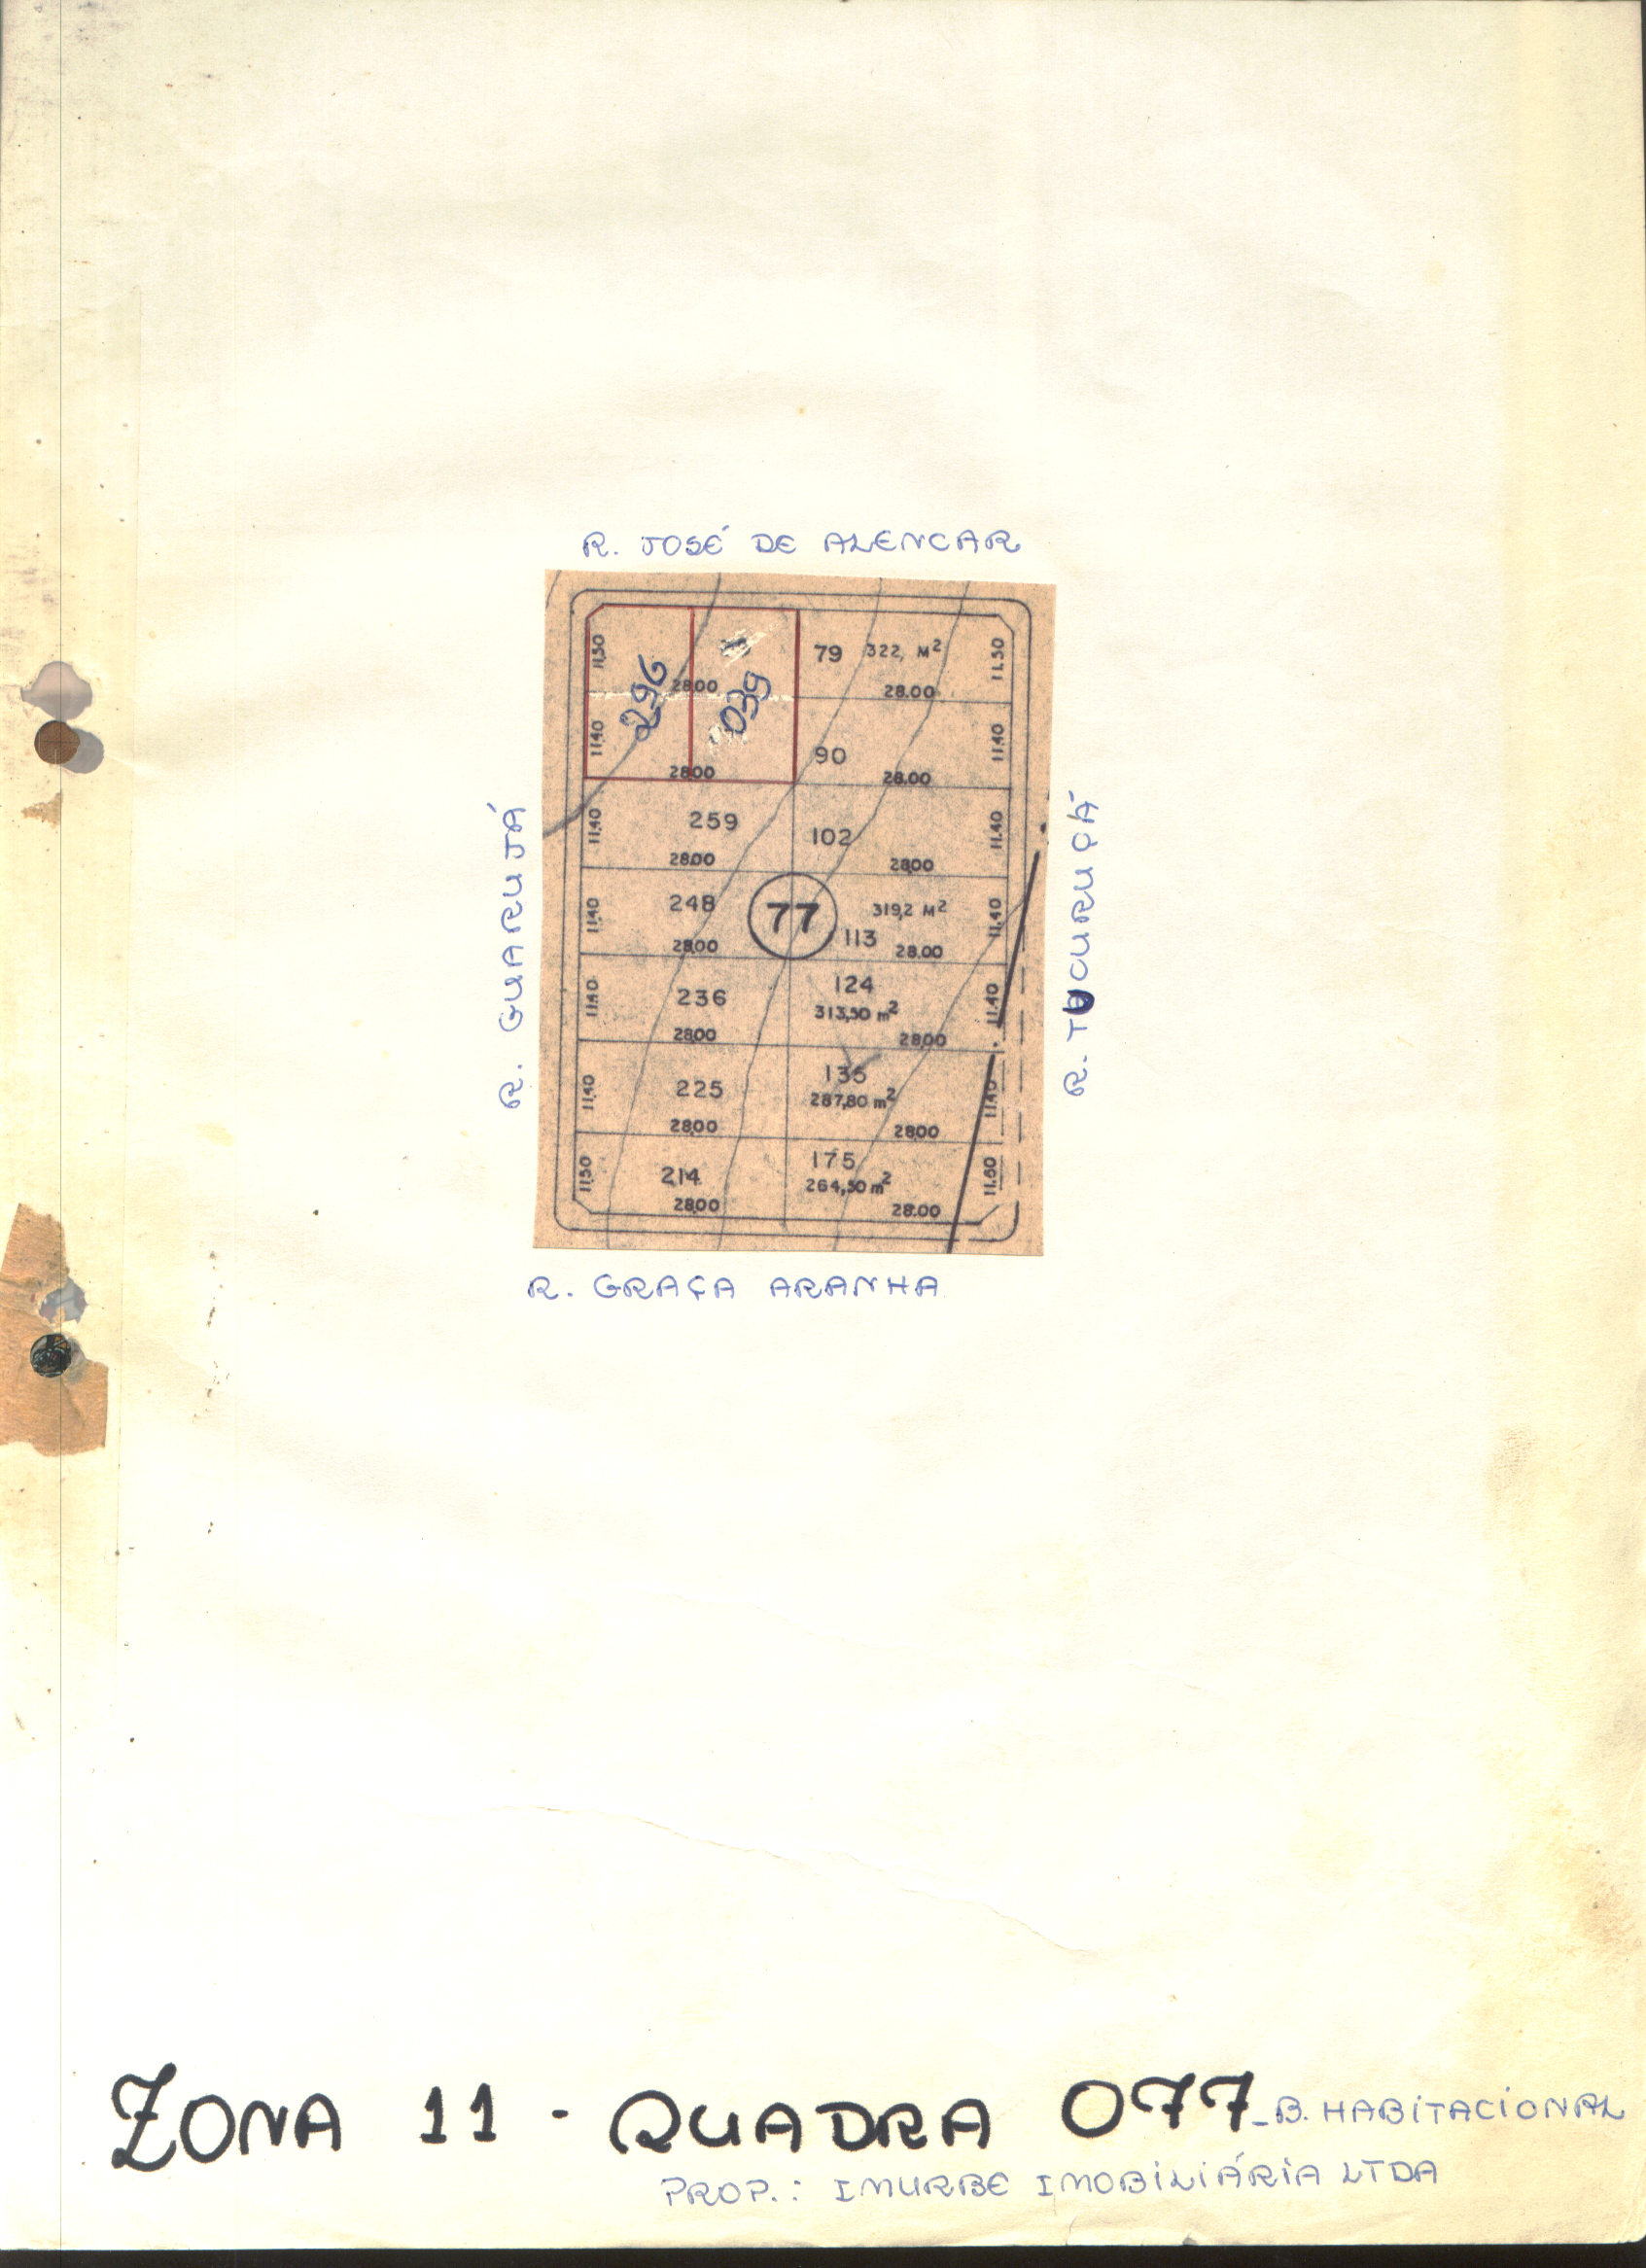 R. JOSÉ DE ALENCAR
11,50
296
28.00
039
79 322, M²
28.00
11.50
11,40
28.00
90
28.00
11.40
R. GUARUJÁ
R. TUCURUÇÁ
11,40
259
28.00
102
28.00
11.40
11,40
248
28.00
77
319,2 M²
113
28.00
11.40
11,40
236
28.00
124
313,50 m²
28.00
11.40
11,40
225
28.00
135
287,80 m²
28.00
11.40
11,50
214
28.00
175
264,50 m²
28.00
11.60
R. GRAÇA ARANHA
ZONA 11 - QUADRA 077 - B. HABITACIONAL
PROP.: IMURBE IMOBILIÁRIA LTDA